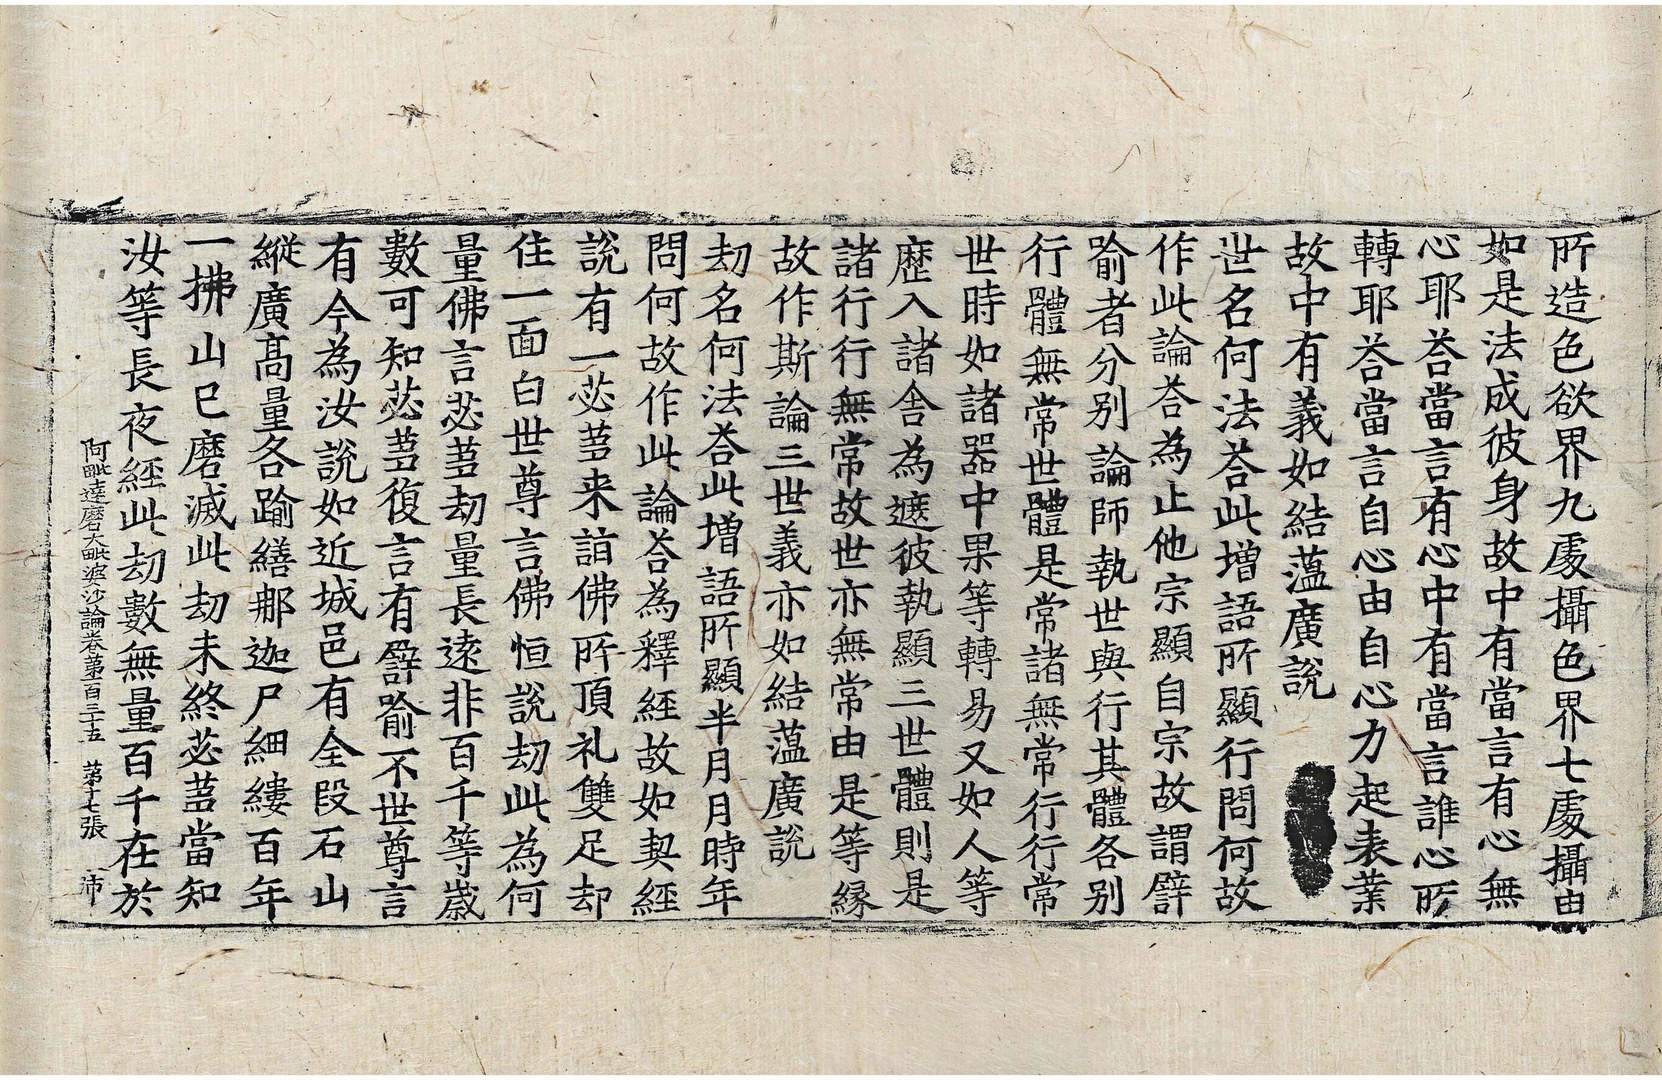 所造色欲界九處攝色界七處攝由
如是法成彼身故中有當言有心無
心耶荅當言有心中有當言誰心所
轉耶荅當言自心由自心力起表業
故中有義如結薀廣說
世名何法荅此增語所顯行問何故
作此論荅為止他宗顯自宗故謂譬
喻者分別論師執世與行其體各別
行體無常世體是常諸無常行行常
世時如諸器中果等轉易又如人等
歷入諸舍為遮彼執顯三世體則是
諸行行無常故世亦無常由是等緣
故作斯論三世義亦如結薀廣說
劫名何法荅此增語所顯半月月時年
問何故作此論荅為釋經故如契經
說有一苾蒭来詣佛所頂礼雙足却
住一面白世尊言佛恒說劫此為何
量佛言苾蒭劫量長遠非百千等歲
數可知苾蒭復言有譬喻不世尊言
有今為汝說如近城邑有全段石山
縱廣高量各踰繕那迦尸細縷百年
一拂山已磨滅此劫未終苾蒭當知
汝等長夜經此劫數無量百千在於
阿毗達磨大毗婆沙論卷第百三十五 第十七張 沛